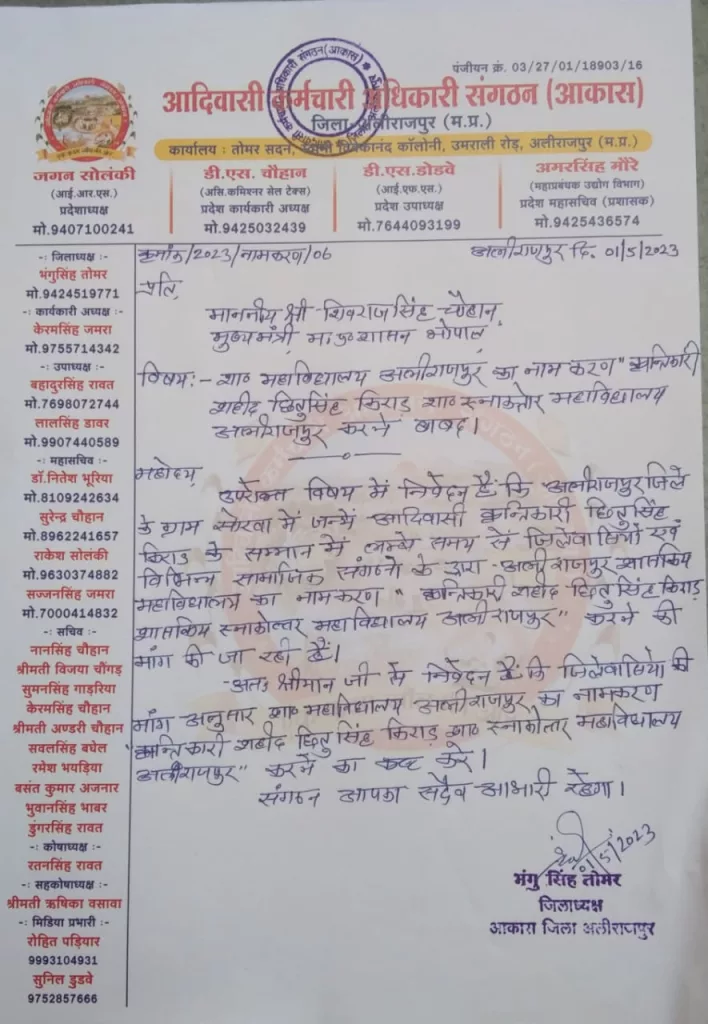 पंजीयन क्रं. 03/27/01/18903/16
आदिवासी कर्मचारी अधिकारी संगठन (आकास)
जिला अलीराजपुर (म.प्र.)
कार्यालय : तोमर सदन, स्वामी विवेकानंद कॉलोनी, उमराली रोड़, अलीराजपुर (म.प्र.)
जगन सोलंकी
(आई.आर.एस.)
प्रदेशाध्यक्ष
मो.9407100241
डी.एस. चौहान
(असि.कमिश्नर सेल टेक्स)
प्रदेश कार्यकारी अध्यक्ष
मो.9425032439
डी.एस.डोडवे
(आई.एफ.एस.)
प्रदेश उपाध्यक्ष
मो.7644093199
अमरसिंह मौरे
(महाप्रबंधक उद्योग विभाग)
प्रदेश महासचिव (प्रशासक)
मो.9425436574
-: जिलाध्यक्ष :-
भंगुसिंह तोमर
मो.9424519771
-: कार्यकारी अध्यक्ष :-
केरमसिंह जमरा
मो.9755714342
-: उपाध्यक्ष :-
बहादुरसिंह रावत
मो.7698072744
लालसिंह डावर
मो.9907440589
-: महासचिव :-
डॉ.नितेश भूरिया
मो.8109242634
सुरेन्द्र चौहान
मो.8962241657
राकेश सोलंकी
मो.9630374882
सज्जनसिंह जमरा
मो.7000414832
-: सचिव :-
नानसिंह चौहान
श्रीमती विजया चौंगड़
सुमनसिंह गाड़रिया
केरमसिंह चौहान
श्रीमती अण्डरी चौहान
सवलसिंह बघेल
रमेश भयड़िया
बसंत कुमार अजनार
भुवानसिंह भाबर
डुंगरसिंह रावत
-: कोषाध्यक्ष :-
रतनसिंह रावत
-: सहकोषाध्यक्ष :-
श्रीमती ऋषिका वसावा
-: मिडिया प्रभारी :-
रोहित पड़ियार
9993104931
सुनिल डुडवे
9752857666
क्रमांक/2023/नामकरण/06 अलीराजपुर दि. 01/5/2023
प्रति,
माननीय श्री शिवराज सिंह चौहान,
मुख्यमंत्री म.प्र. शासन भोपाल
विषय:- शा० महाविद्यालय अलीराजपुर का नाम करण "क्रान्तिकारी
शहीद छितुसिंह किराड़ शा० स्नाकोत्तर महाविद्यालय
अलीराजपुर करने बाबद।
महोदय,
उपरोक्त विषय में निवेदन है कि अलीराजपुर जिले
के ग्राम सोरवा में जन्में आदिवासी क्रान्तिकारी छितुसिंह
किराड़ के सम्मान में लम्बे समय से जिलेवासियों एवं
विभिन्न सामाजिक संगठनो के द्वारा अलीराजपुर शासकिय
महाविद्यालय का नामकरण "क्रान्तिकारी शहीद छितुसिंह किराड़
शासकिय स्नाकोत्तर महाविद्यालय अलीराजपुर" करने की
मांग की जा रही है।
अतः श्रीमान जी से निवेदन है कि जिलेवासियो की
मांग अनुसार शा० महाविद्यालय अलीराजपुर का नामकरण
क्रान्तिकारी शहीद छितुसिंह किराड़ शा० स्नाकोत्तर महाविद्यालय
अलीराजपुर" करने का कष्ट करे।
संगठन आपका सदैव आभारी रहेगा।
01/5/2023
भंगु सिंह तोमर
जिलाध्यक्ष
आकास जिला अलीराजपुर